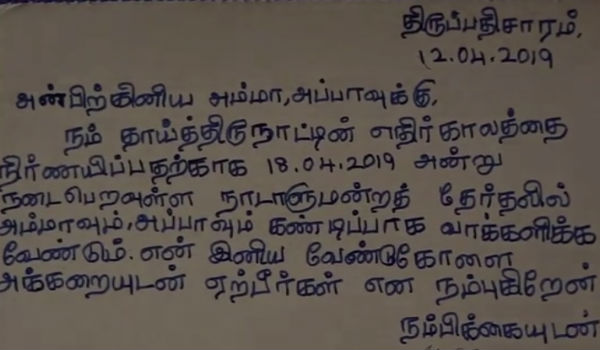 திருப்பதிசாரம்,
12.04.2019
அன்பிற்கினிய அம்மா, அப்பாவுக்கு,
நம் தாய்த்திருநாட்டின் எதிர்காலத்தை
நிர்ணயிப்பதற்காக 18.04.2019 அன்று
நடைபெறவுள்ள நாடாளுமன்றத் தேர்தலில்
அம்மாவும், அப்பாவும் கண்டிப்பாக வாக்களிக்க
வேண்டும். என் இனிய வேண்டுகோளை
அக்கறையுடன் ஏற்பீர்கள் என நம்புகிறேன்
நம்பிக்கையுடன்